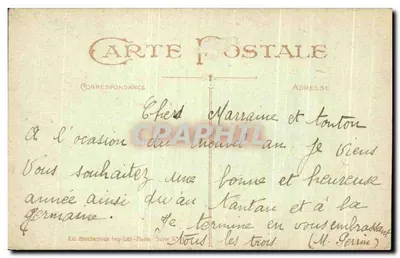 CARTE POSTALE
CORRESPONDANCE ADRESSE
Chers Marraine et tonton
A l'ocasion du nouvel an je viens
Vous souhaitez une bonne et heureuse
année ainsi qu'au Tantan et à la
Germaine. Je termine en vous embrassant
tous les trois